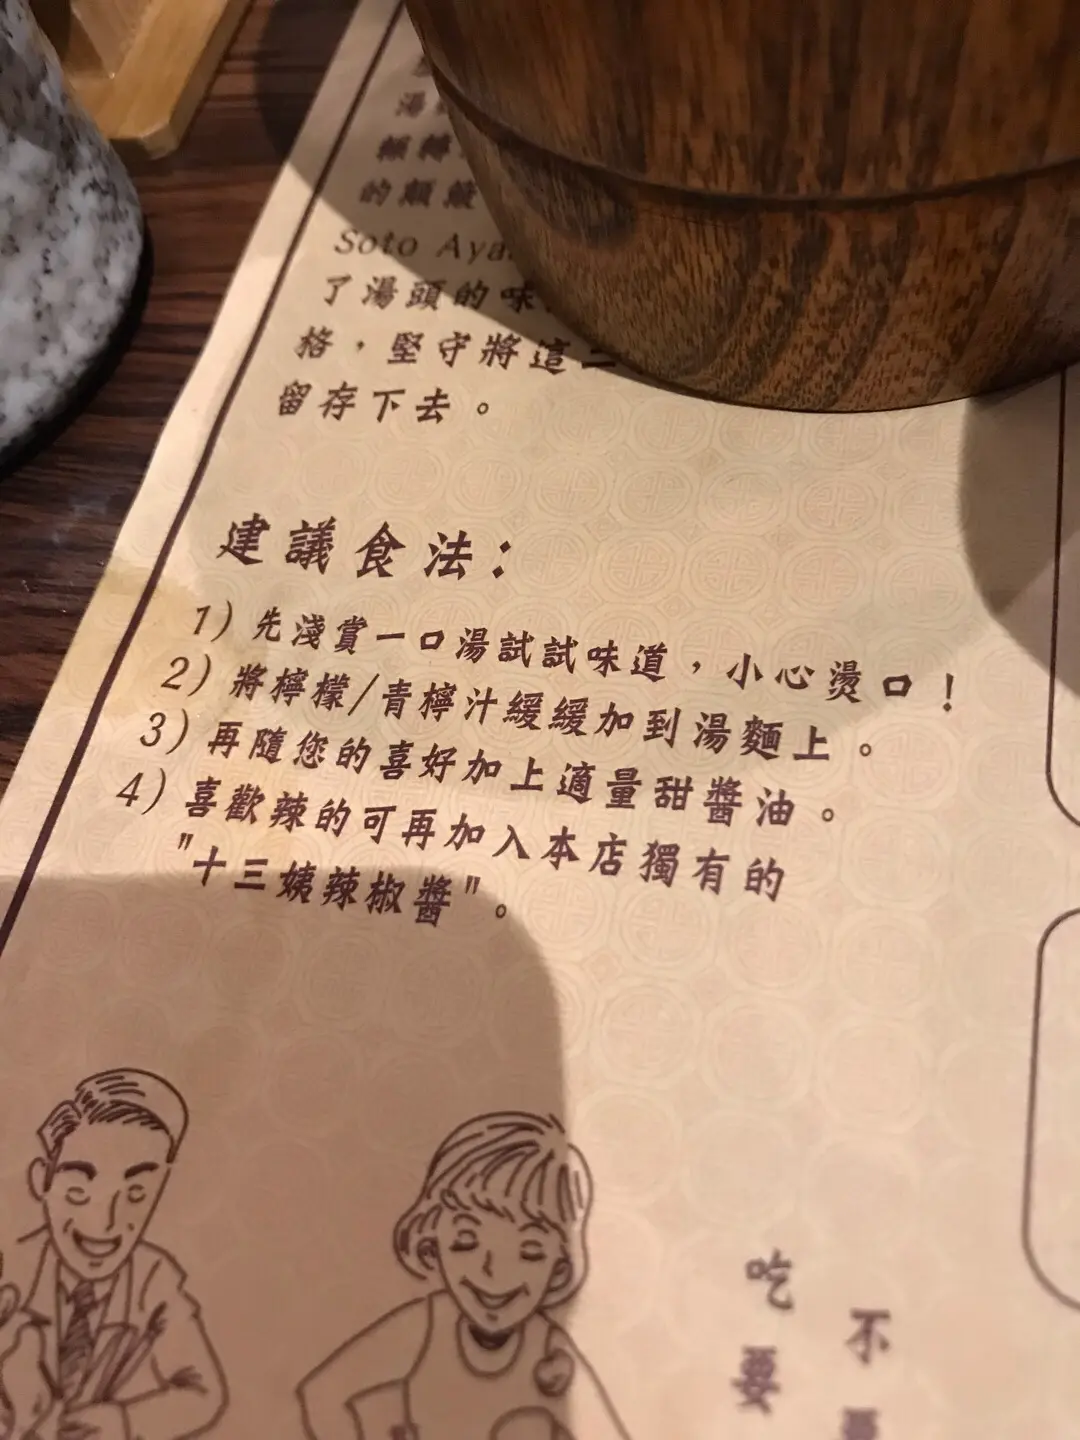 的
Soto Aya
了湯頭的味
格，堅守將這二
留存下去。
建議食法：
1) 先淺賞一口湯試試味道，小心燙口！
2) 將檸檬/青檸汁緩緩加到湯麵上。
3) 再隨您的喜好加上適量甜醬油。
4) 喜歡辣的可再加入本店獨有的
"十三姨辣椒醬"。
吃要
不